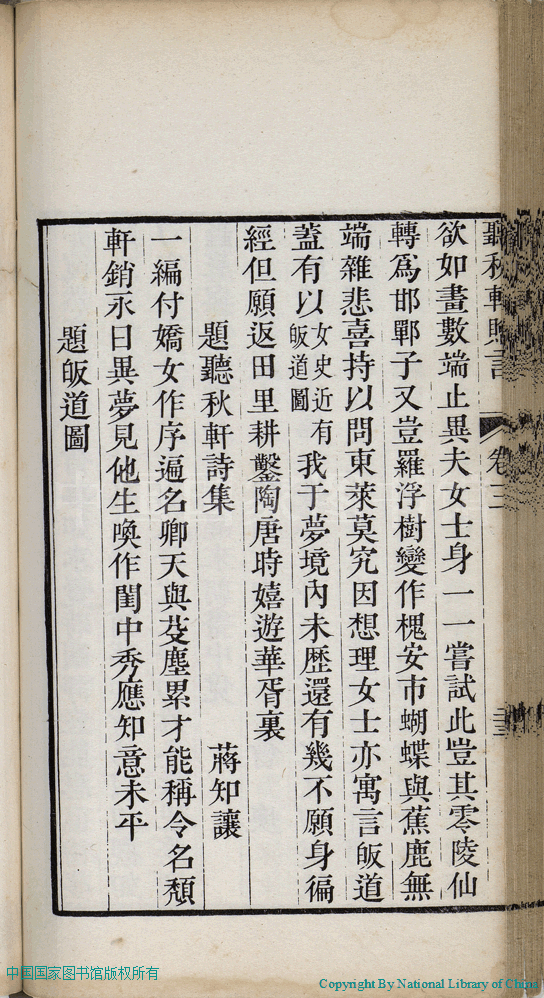 聽秋軒贈言 卷三
欲如畫數端止異夫女士身一一嘗試此豈其零陵仙
轉爲邯鄲子又豈羅浮樹變作槐安市蝴蝶與蕉鹿無
端雜悲喜持以問東萊莫究因想理女士亦寓言皈道
蓋有以女史近有皈道圖我于夢境內未歷還有幾不願身徧
經但願返田里耕鑿陶唐時嬉遊華胥裏
題聽秋軒詩集 蔣知讓
一編付嬌女作序遍名卿天與芟塵累才能稱令名頽
軒銷永日異夢見他生喚作閨中秀應知意未平
題皈道圖
中国国家图书馆版权所有
Copyright By National Library of China